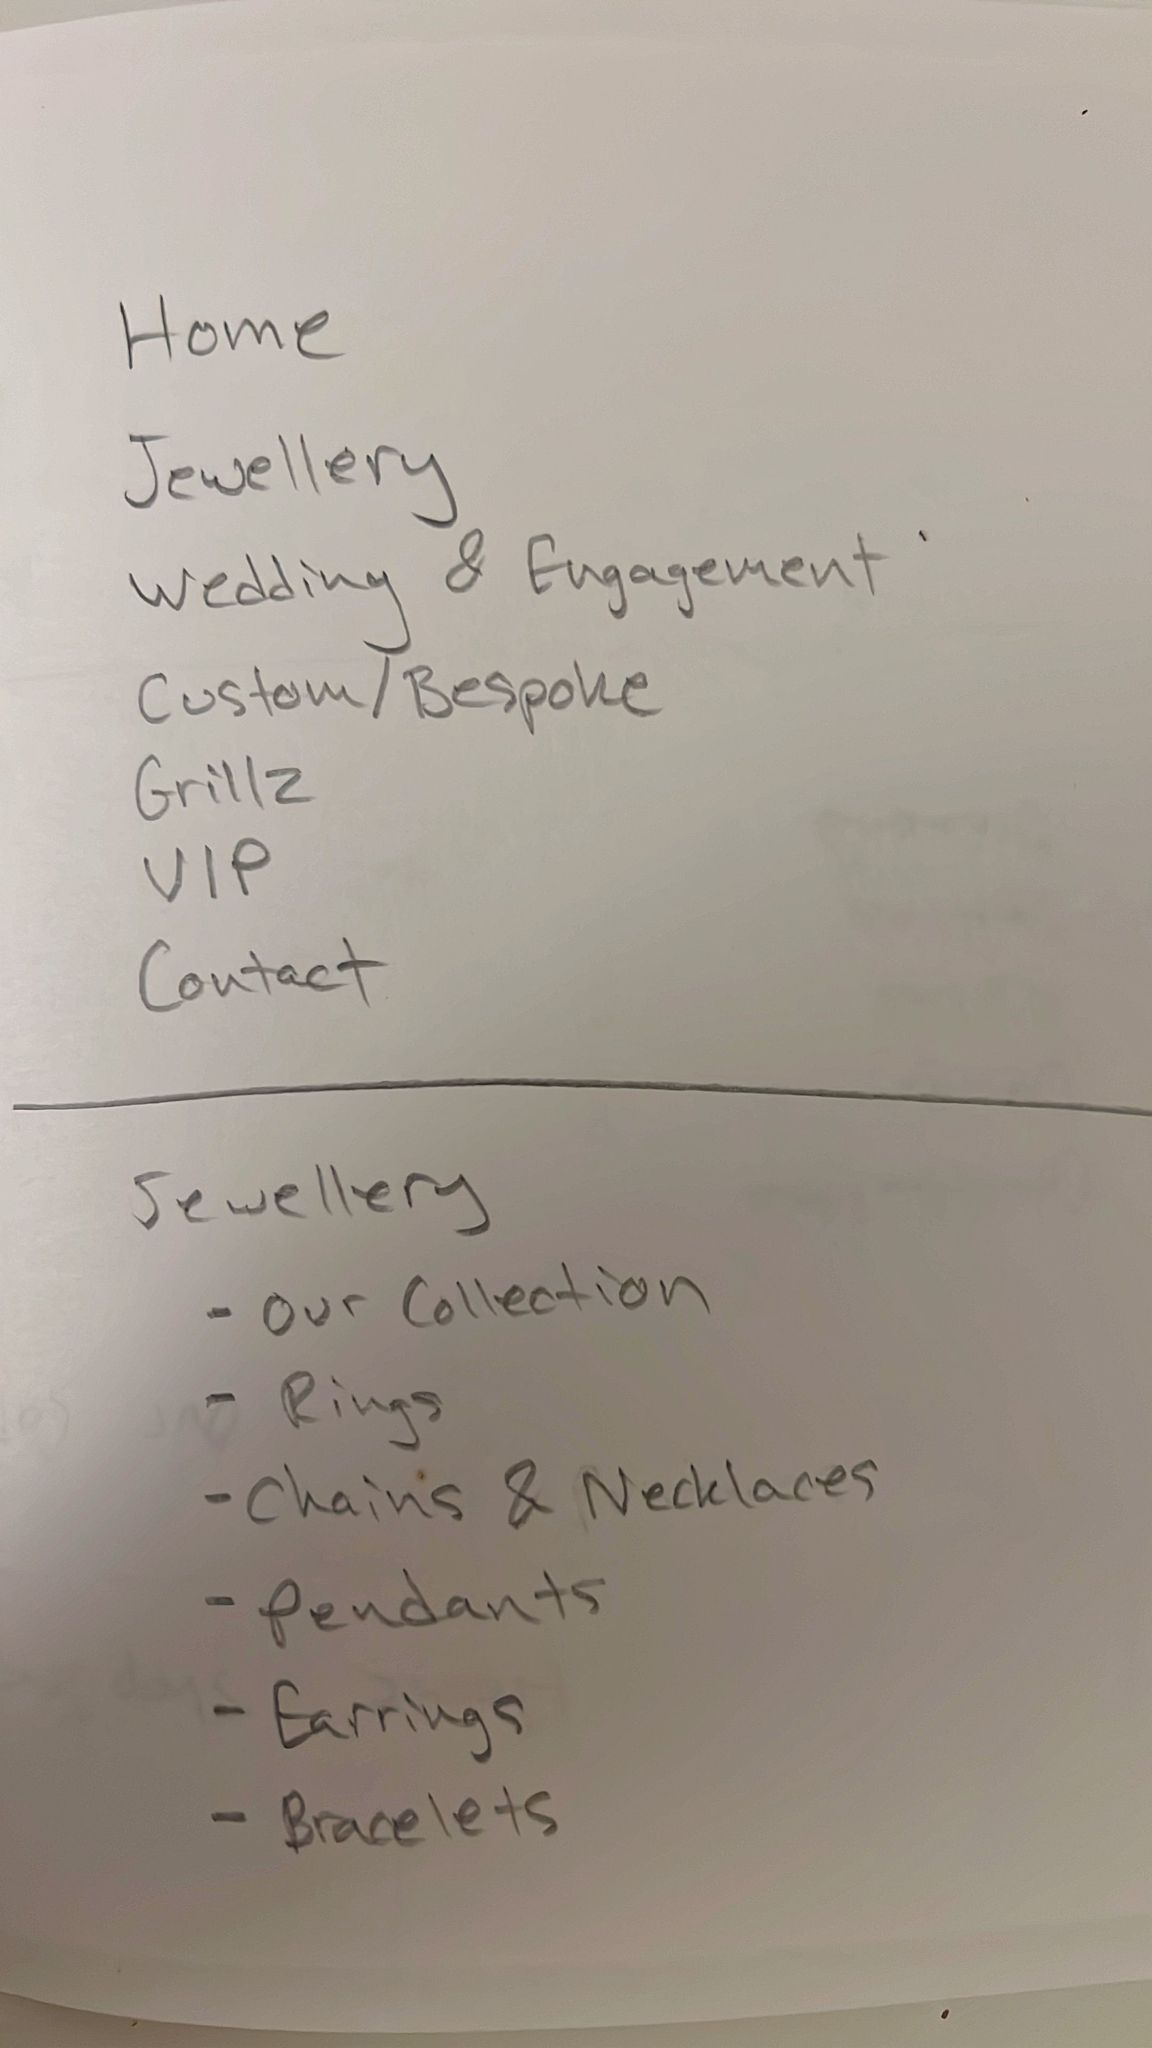 Home
Jewellery
Wedding & Engagement
Custom/Bespoke
Grillz
VIP
Contact
Jewellery
- Our Collection
- Rings
- Chains & Necklaces
- Pendants
- Earrings
- Bracelets